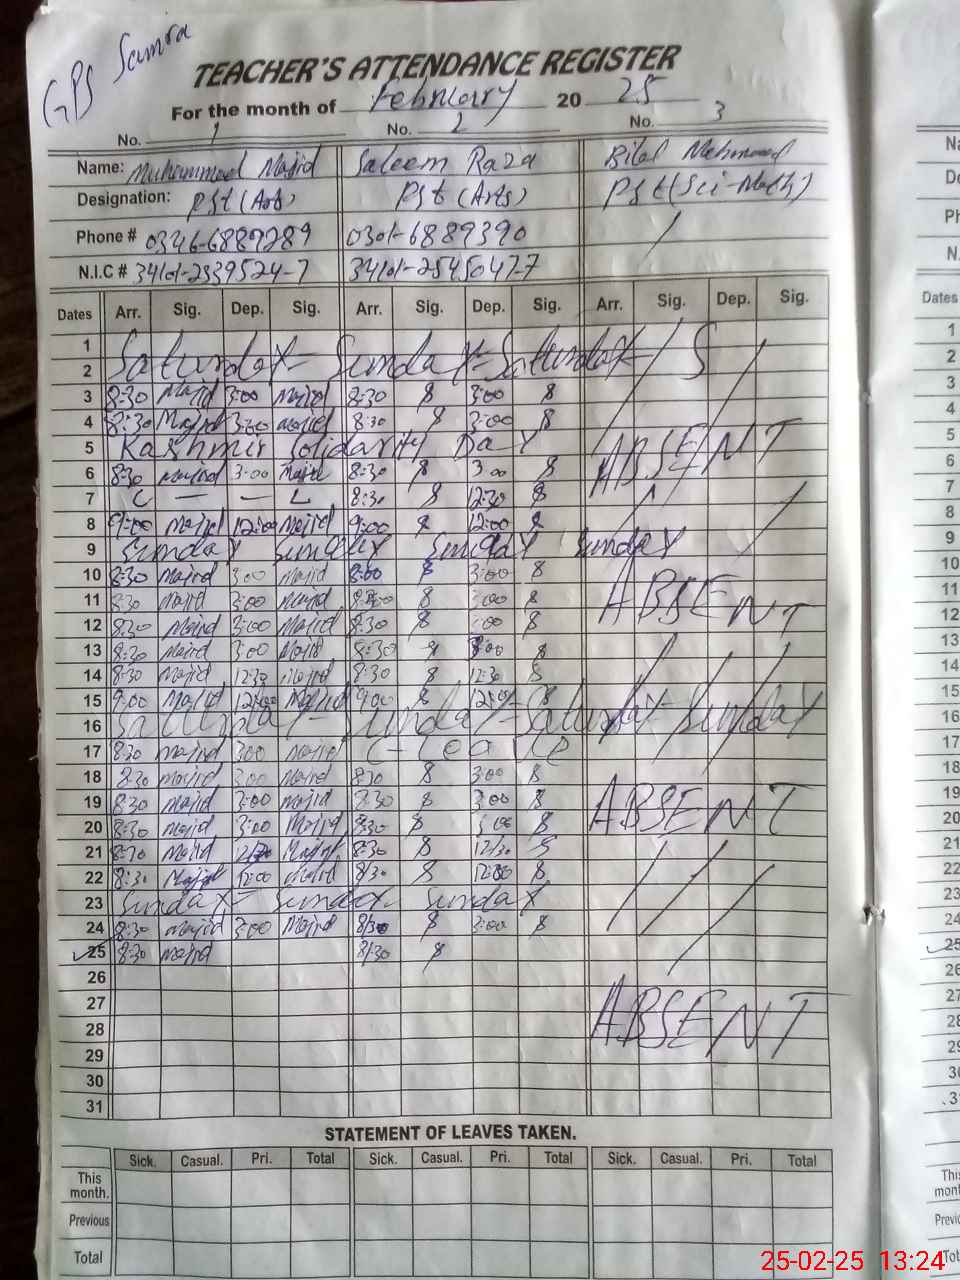 GPS Samra
TEACHER'S ATTENDANCE REGISTER
For the month of February 20 25
No. 1 No. 2 No. 3
Name: Muhammad Majid Saleem Raza Bilal Mehmood
Designation: Pst (Arts) Pst (Arts) Pst (Sci-Math)
Phone # 0346-6887289 0301-6889390
N.I.C # 34101-2339524-7 34101-2545047-7
Dates Arr. Sig. Dep. Sig. Arr. Sig. Dep. Sig. Arr. Sig. Dep. Sig.
1
2 Saturday - Sunday - Saturday - S
3 8:30 Majid 3:00 Majid 8:30 3:00
4 8:30 Majid 3:00 Majid 8:30 3:00
5 Kashmir Solidarity Day ABSENT
6 8:30 Majid 3:00 Majid 8:30 3:00
7 C — — L 8:30 12:30
8 9:00 Majid 12:00 Majid 9:00 12:00
9 Sunday Sunday Sunday Sunday
10 8:30 Majid 3:00 Majid 8:00 3:00
11 8:30 Majid 3:00 Majid 3:00 ABSENT
12 8:30 Majid 3:00 Majid 8:30 :00
13 8:30 Majid 3:00 Majid 8:30 3:00
14 8:30 Majid 12:30 Majid 8:30 12:30
15 9:00 Majid 12:00 Majid 9:00 12:00
16 Saturday - Sunday - Saturday - Sunday
17 8:30 Majid 3:00 Majid C-Leave
18 8:30 Majid 3:00 Majid 8:30 3:00
19 8:30 Majid 3:00 Majid 8:30 3:00 ABSENT
20 8:30 Majid 3:00 Majid 8:30 3:00
21 8:30 Majid 12/30 Majid 8:30 12/30
22 8:30 Majid 12:00 Majid 8/30 12:00
23 Sunday - Sunday - Sunday
24 8:30 Majid 3:00 Majid 8/30 3:00
25 8:30 Majid 8/30
26
27
28 ABSENT
29
30
31
STATEMENT OF LEAVES TAKEN.
Sick. Casual. Pri. Total Sick. Casual. Pri. Total Sick. Casual. Pri. Total
This month.
Previous
Total
25-02-25 13:24